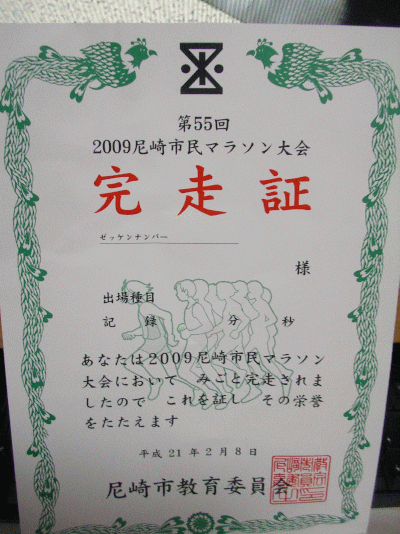 第55回
2009尼崎市民マラソン大会
完走証
ゼッケンナンバー
様
出場種目
記 録 分 秒
あなたは2009尼崎市民マラソン
大会において みごと完走されま
したので これを証し その栄誉
をたたえます
平成21年2月8日
尼崎市教育委員会